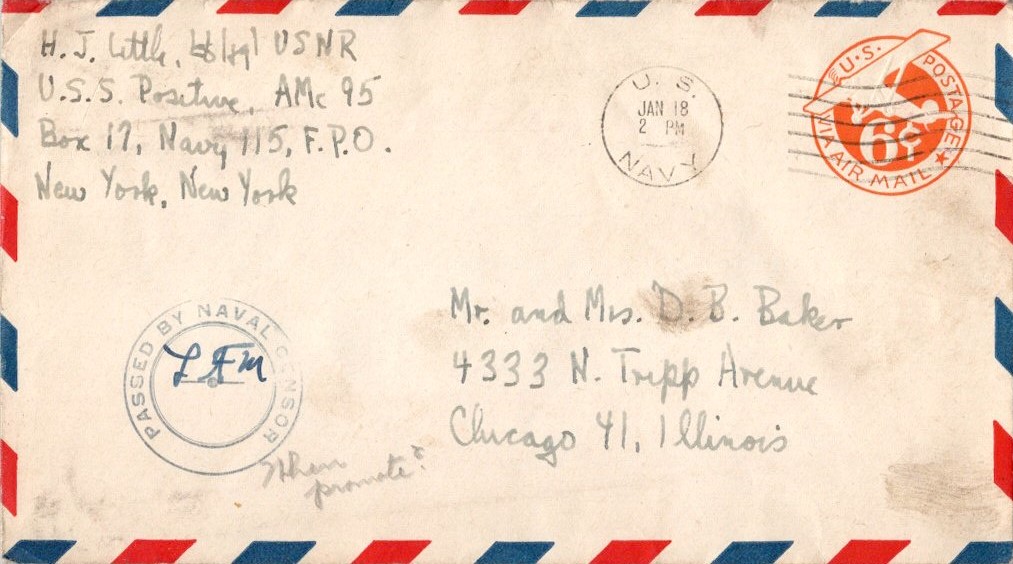 H. J. Little, Lt(jg) USNR
U.S.S. Positive, AMc 95
Box 17, Navy 115, F.P.O.
New York, New York
U. S.
JAN 18
2 PM
NAVY
U.S. POSTAGE
6¢
VIA AIR MAIL
Mr. and Mrs. D. B. Baker
4333 N. Tripp Avenue
Chicago 41, Illinois
PASSED BY NAVAL CENSOR
When